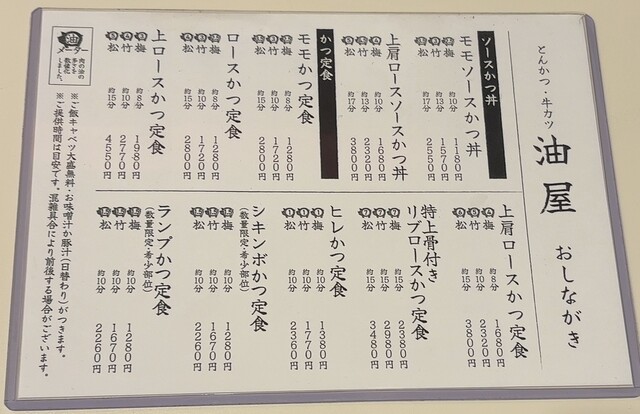 とんかつ・牛カツ
油屋 おしながき
ソースかつ丼
モモソースかつ丼
梅 約10分 1180円
竹 約13分 1570円
松 約17分 2550円
上肩ロースソースかつ丼
梅 約10分 1680円
竹 約13分 2320円
松 約17分 3800円
かつ定食
モモかつ定食
梅 約8分 1280円
竹 約10分 1720円
松 約15分 2800円
ロースかつ定食
梅 約8分 1280円
竹 約10分 1720円
松 約15分 2800円
上ロースかつ定食
梅 約8分 1980円
竹 約10分 2770円
松 約15分 4550円
上肩ロースかつ定食
梅 約8分 1680円
竹 約10分 2320円
松 約15分 3800円
特上骨付き
リブロースかつ定食
梅 約15分 2380円
竹 約15分 2980円
松 約15分 3480円
ヒレかつ定食
梅 約10分 1380円
竹 約10分 1770円
松 約10分 2360円
シキンボかつ定食
(数量限定・希少部位)
梅 約10分 1280円
竹 約10分 1670円
松 約10分 2260円
ランプかつ定食
(数量限定・希少部位)
梅 約10分 1280円
竹 約10分 1670円
松 約10分 2260円
油
メーター
肉の油の
多さを
数値化
しました。
※ご飯キャベツ大盛無料・お味噌汁か豚汁(日替わり)がつきます。
※ご提供時間は目安です。混雑具合により前後する場合がございます。